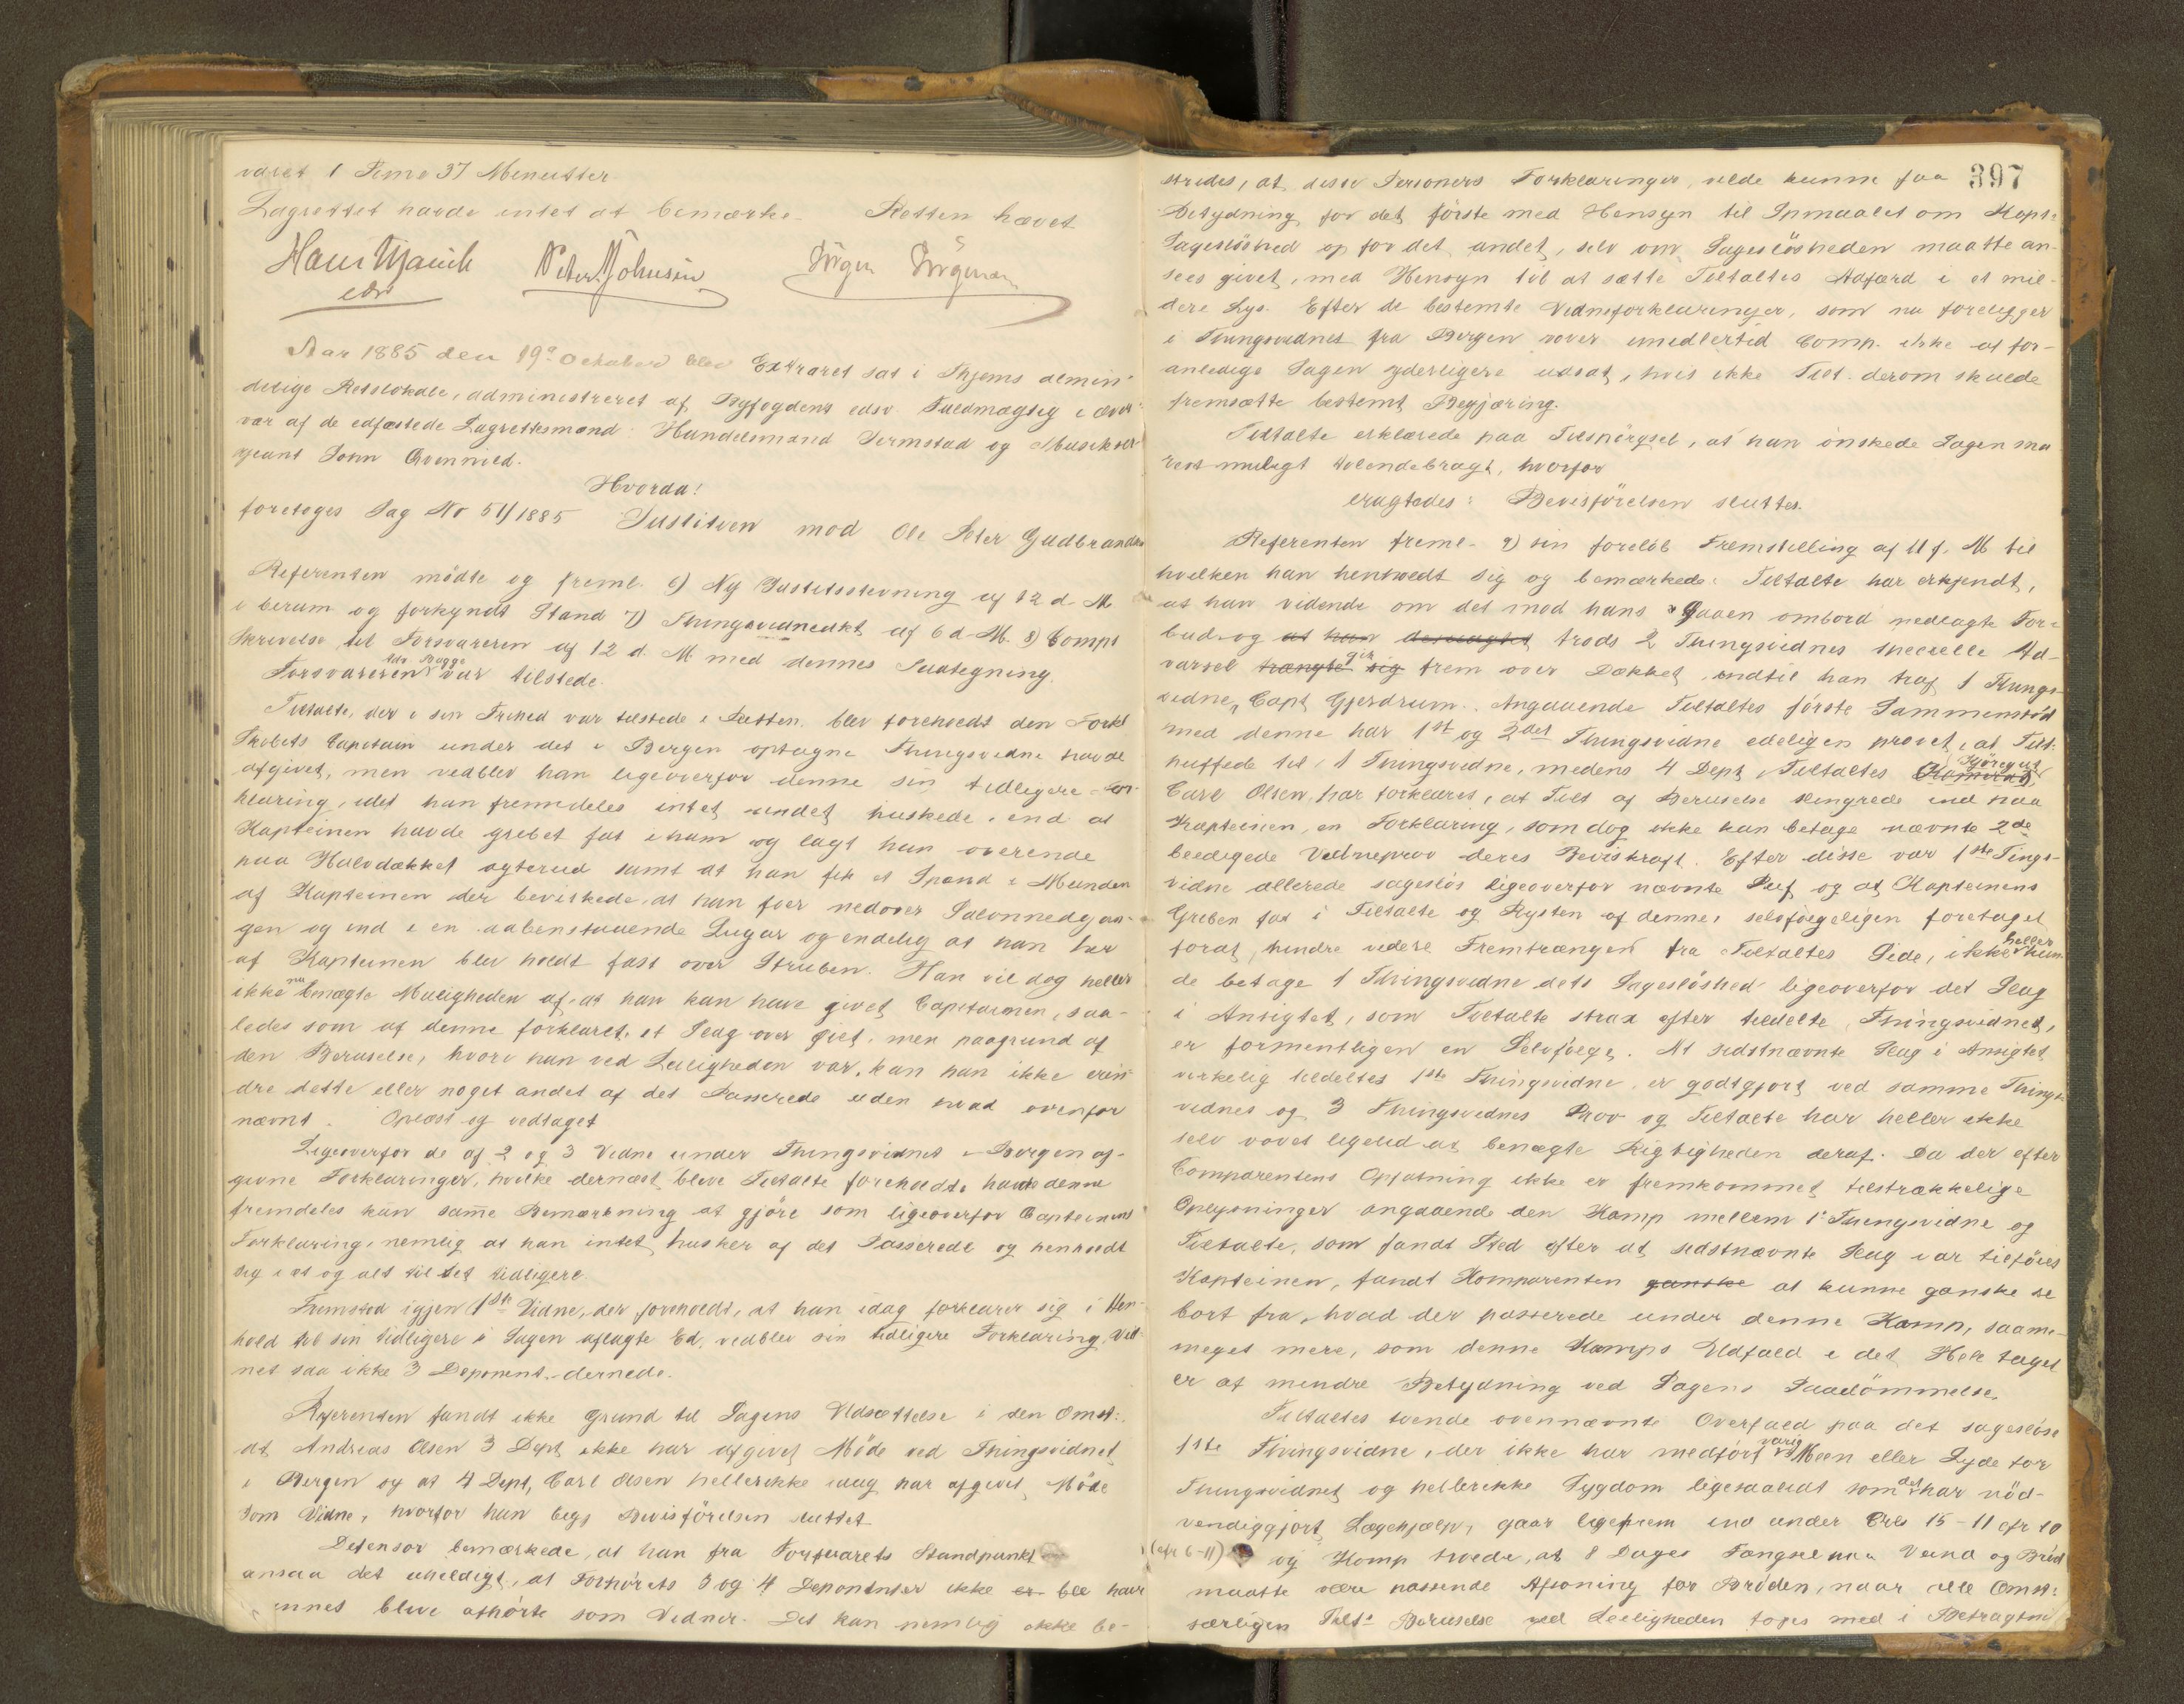 varet 1 Time 37 Minutter
Lagrettet havde intet at bemærke. Retten hævet
Hans Peter Johnsen Jörgen Jörgensen
edsv
Aar 1885 den 19de October blev Extraret sat i Skjems almin-
delige Retslokale, administreret af Byfogdens edsv. Fuldmægtig i over-
vær af de edfæstede Lagrettesmænd: Handelsmand Sermstad og Musikser-
geant John Qvennild.
Hvorda!
foretoges Sag No 51/1885 Justitien mod Ole Peter Gudbrandsen
Referenten mödte og freml. 6) Ny Justitsstevning af 12 d. M.
i beram og forkyndt Stand 7) Thingsvidneakt af 6 d. M. 8) Comps
Skrivelse til Forsvareren af 12 d. M med dennes Paategning.
Forsvareren Adv. Bugge var tilstede.
Tiltalte, der i sin Frihed var tilstede i Retten, blev foreholdt den Forkl
Skibets Capotain under det i Bergen optagne Thingsvidne havde
afgivet, men vedblev han ligeoverfor denne sin tidligere For-
klaring, idet han fremdeles intet andet huskede, end at
Kapteinen havde grebet fat i ham og lagt han overende
paa Halvdækket agterud samt at han fik et Spænd i Munden
af Kapteinen der bevirkede, at han foer nedover Salonnedgan-
gen og ind i en aabenstaaende Lugar og endelig at han her
af Kapteinen blev holdt fast over Struben. Han vil dog heller
ikke nu benægte Muligheden af, at han kan have givet Capitainen, saa-
ledes som af denne forklaret, et Slag over Öiet, men paagrund af
den Beruselse, hvori han ved Leiligheden var, kan han ikke erin-
dre dette eller noget andet af det Passerede uden hvad ovenfor
nævnt. Oplæst og vedtaget
Ligeoverfor de af 2 og 3 Vidne under Thingsvidnet i Bergen af-
givne Forklaringer, hvilke dernæst bleve Tiltalte foreholdt, havde denne
fremdeles kun samme Bemærkning at gjöre som ligeoverfor Capteinens
Forklaring, nemlig at han intet husker af det Passerede og henholdt
sig i et og alt til det tidligere
Fremstod igjen 1ste Vidne, der foreholdt, at han idag forklarer sig i Hen-
hold til sin tidligere i Sagen aflagte Ed, vedblev sin tidligere Forklaring. Vid-
net saa ikke 3 Deponent dernede.
Referenten fandt ikke Grund til Sagens Udsættelse i den Omst:
at Andreas Olsen 3 Dept ikke har afgivet Möde ved Thingsvidnet
i Bergen og at 4 Dept, Carl Olsen hellerikke idag har afgivet Möde
som Vidne, hvorfor han begj Bevisförelsen sluttet
Defensor bemærkede, at han fra Forsvarets Standpunkt
ansaa det uheldigt, at Forhörets 3 og 4 Deponenter ikke er ble
bleve afhörte som Vidner. Det kan nemlig ikke be-
397
strides, at disse Personers Forklaringer vilde kunne faa
Betydning for det förste med Hensyn til Spmaalet om Kapt:
Sageslöshed og for det andet, selv om Sageslösheden maatte an-
sees givet, med Hensyn til at sætte Tiltaltes Adfærd i et mil-
dere Lys. Efter de bestemte Vidneforklaringer, som nu foreligger
i Thingsvidnet fra Bergen vover imidlertid Comp. ikke at for-
anledige Sagen yderligere udsat, hvis ikke Tilt. derom skulde
fremsætte bestemt Begjæring.
Tiltalte erklærede paa Tilspörgsel, at han önskede Sagen sna-
rest muligt tilendebragt, hvorfor
eragtedes: Bevisförelsen sluttes.
Referenten freml. 9) sin foreløb Fremstilling af 11 f. M til
hvilken han henholdt sig og bemærkede: Tiltalte har erkjendt,
at han vidende om det mod hans Gaaen ombord nedlagte For-
bud og at han desuagtet trods 2 Thingsvidnes specielle Ad-
varsel trængte gik sig frem over Dækket, indtil han traf 1 Things-
vidne, Capt Gjerdrum. Angaaende Tiltaltes förste Sammenstöd
med denne har 1ste og 2det Thingsvidne edeligen provet, at Tilt.
puffede til 1 Thingsvidne, medens 4 Dept, Tiltaltes
Carl Olsen, har forklaret, at Tilt af Beruselse slingrede ind paa
Kapteinen, en Forklaring, som dog ikke kan betage nævnte 2de
beedigede Vidneprov deres Beviskraft. Efter disse var 1ste Tings-
vidne allerede sageslös ligeoverfor nævnte Puf og at Kapteinens
Griben fat i Tiltalte og Rysten af denne, selvfölgeligen foretaget
forat hindre videre Fremtrængen fra Tiltaltes Side, ikke heller kun-
de betage 1 Thingsvidne dets Sageslöshed ligeoverfor det Slag
i Ansigtet, som Tiltalte strax efter tildelte Thingsvidnet,
er formentligen en Selvfölge. At sidstnævnte Slag i Ansigtet
virkelig tildeltes 1ste Thingsvidne, er godtgjort ved samme Things-
vidnes og 3 Thingsvidnes Prov og Tiltalte har heller ikke
selv vovet ligetil at benægte Rigtigheden deraf. Da der efter
Comparentens Opfatning ikke er fremkommet tilstrækkelige
Oplysninger angaaende den Kamp mellem 1 Thingsvidne og
Tiltalte, som fandt Sted efter at sidstnævnte Slag var tilföiet
Kapteinen, fandt Komparenten ganske at kunne ganske se
bort fra, hvad der passerede under denne Kamp, saame-
meget mere, som denne Kamps Udfald i det Hele taget
er af mindre Betydning ved Sagens Paadömmelse.
Tiltaltes tvende ovennævnte Overfald paa det sageslöse
1ste Thingsvidne, der ikke har medfört varig Meen eller Lyde for
Thingsvidnet og hellerikke Sygdom ligesaalidt som det har nöd-
vendiggjort Lægehjælp, gaar ligefrem ind under Crl 15-11 cfr 10
(cfr 6-11) og Komp troede, at 8 Dages Fængsel paa Vand og Bröd
maatte være passende Afsoning for Bröden, naar alle Omst:
særligen Tilts Beruselse ved Leiligheden toges med i Betragtning